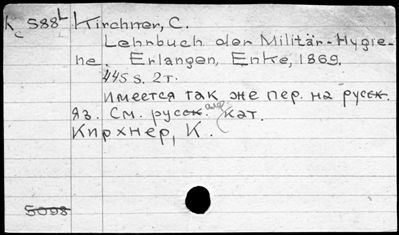 K 588 L Kirchner, C.
Lehrbuch der Militär-Hygie-
ne. Erlangen, Enke, 1869.
445 s. 2т.
Имеется так же пер. на русск.
яз. См. русск. алф. кат.
Кирхнер, К.
5098